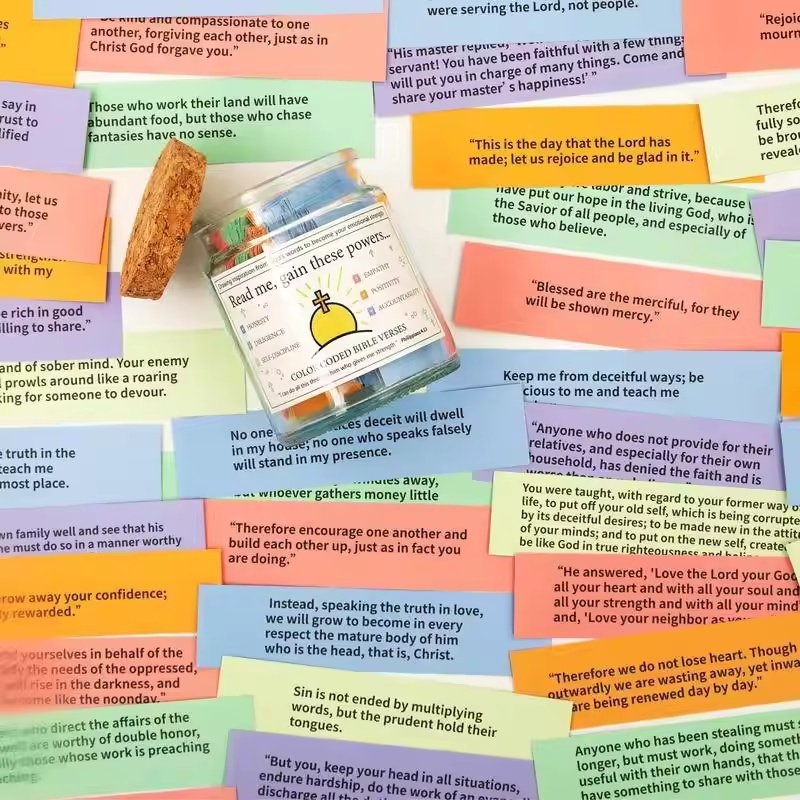 Be kind and compassionate to one
another, forgiving each other, just as in
Christ God forgave you."
were serving the Lord, not people.
"Rejoic
mourn
"His master replied,
servant! You have been faithful with a few things
will put you in charge of many things. Come and
share your master's happiness!' "
say in
rust to
lified
Those who work their land will have
abundant food, but those who chase
fantasies have no sense.
"This is the day that the Lord has
made; let us rejoice and be glad in it."
Therefo
fully so
be brou
reveale
nity, let us
to those
vers."
have put our hope in the living God, who is
the Savior of all people, and especially of
those who believe.
strengthen
with my
Drawing inspiration from
words to become your emotional strength
Read me, gain these powers...
HONESTY
DILIGENCE
SELF-DISCIPLINE
EMPATHY
POSITIVITY
ACCOUNTABILITY
COLOR-CODED BIBLE VERSES
"I can do all this
him who gives me strength."
Philippians 4:13
"Blessed are the merciful, for they
will be shown mercy."
e rich in good
illing to share."
and of sober mind. Your enemy
prowls around like a roaring
king for someone to devour.
Keep me from deceitful ways; be
cious to me and teach me
No one
ices deceit will dwell
in my house; no one who speaks falsely
will stand in my presence.
"Anyone who does not provide for their
relatives, and especially for their own
household, has denied the faith and is
e truth in the
teach me
most place.
dwindles away,
but whoever gathers money little
You were taught, with regard to your former way o
life, to put off your old self, which is being corrupte
by its deceitful desires; to be made new in the attit
of your minds; and to put on the new self, create
be like God in true righteousness and
wn family well and see that his
ne must do so in a manner worthy
"Therefore encourage one another and
build each other up, just as in fact you
are doing."
"He answered, 'Love the Lord your God
all your heart and with all your soul and
all your strength and with all your mind
and, 'Love your neighbor as
row away your confidence;
ly rewarded."
Instead, speaking the truth in love,
we will grow to become in every
respect the mature body of him
who is the head, that is, Christ.
yourselves in behalf of the
the needs of the oppressed,
will rise in the darkness, and
become like the noonday."
"Therefore we do not lose heart. Though
outwardly we are wasting away, yet inwa
are being renewed day by day."
Sin is not ended by multiplying
words, but the prudent hold their
tongues.
who direct the affairs of the
well are worthy of double honor,
those whose work is preaching
"But you, keep your head in all situations,
endure hardship, do the work of an
discharge all the
Anyone who has been stealing must s
longer, but must work, doing someth
useful with their own hands, that th
have something to share with those